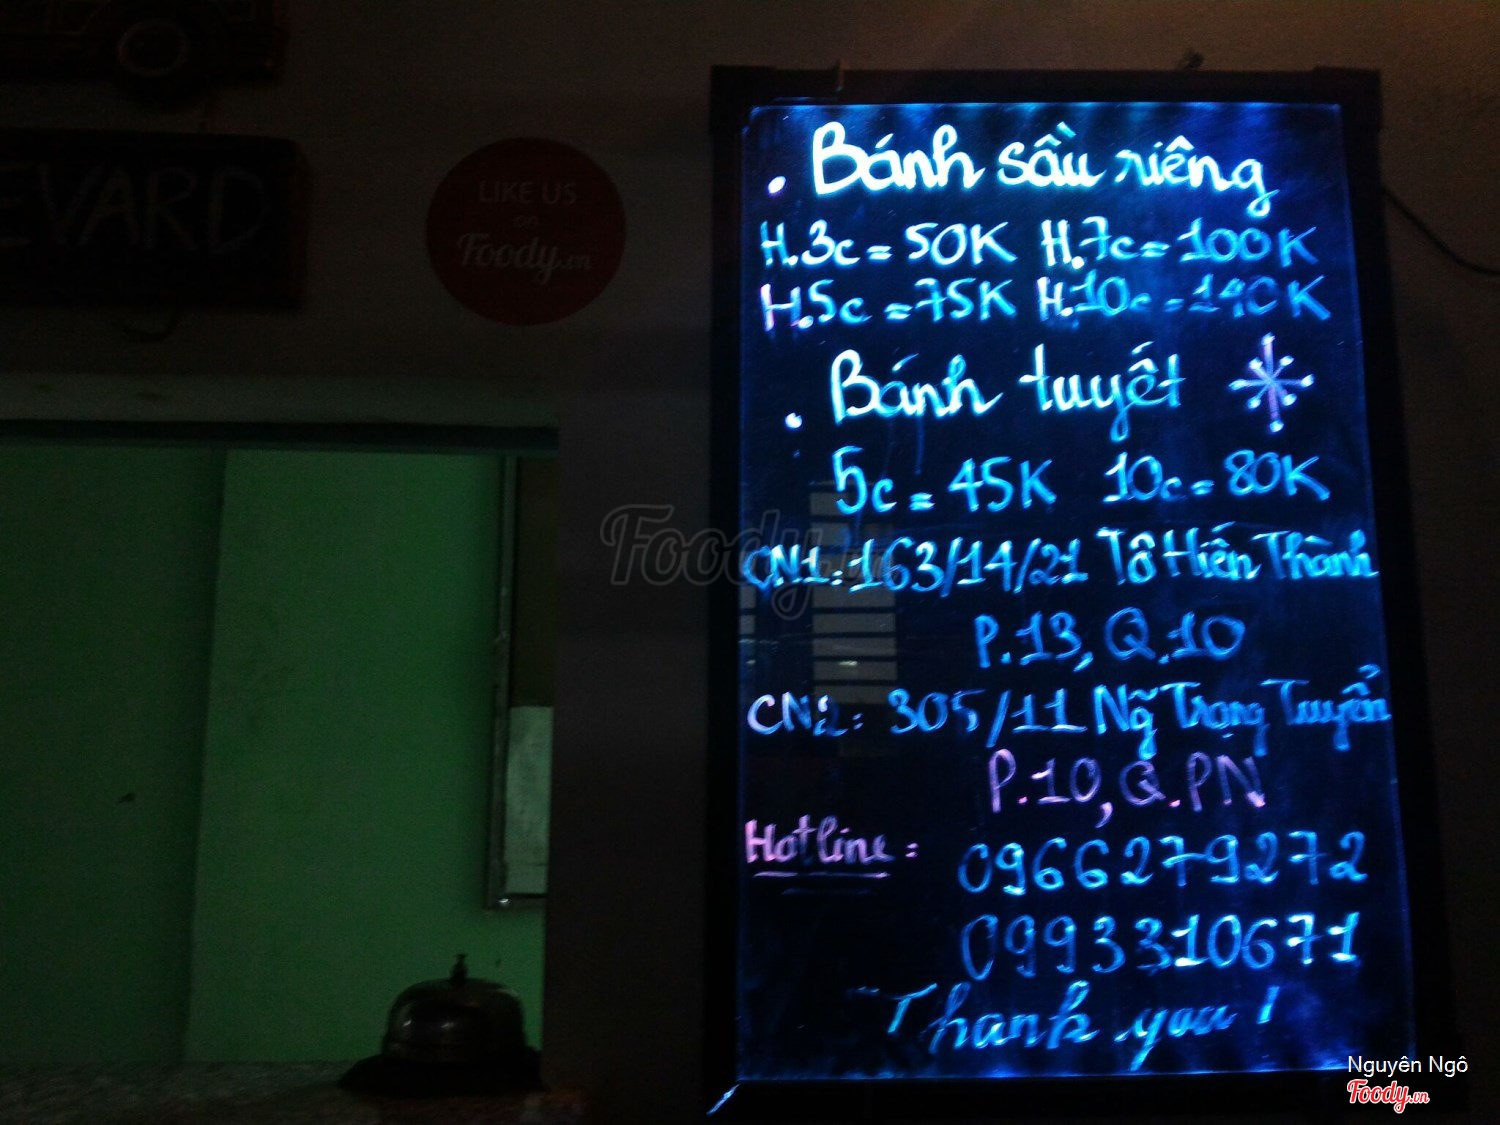 EVARD
LIKE US
on
Foody.vn
. Bánh sầu riêng
H.3c = 50K H.7c = 100K
H.5c = 75K H.10c = 140K
. Bánh tuyết
5c = 45K 10c = 80K
CN1: 163/14/21 Tô Hiến Thành
P.13, Q.10
CN2: 305/11 Ng~ Trọng Tuyển
P.10, Q.PN
Hotline: 0966279272
0993310671
Thank you!
Foody.vn
Nguyên Ngô
Foody.vn